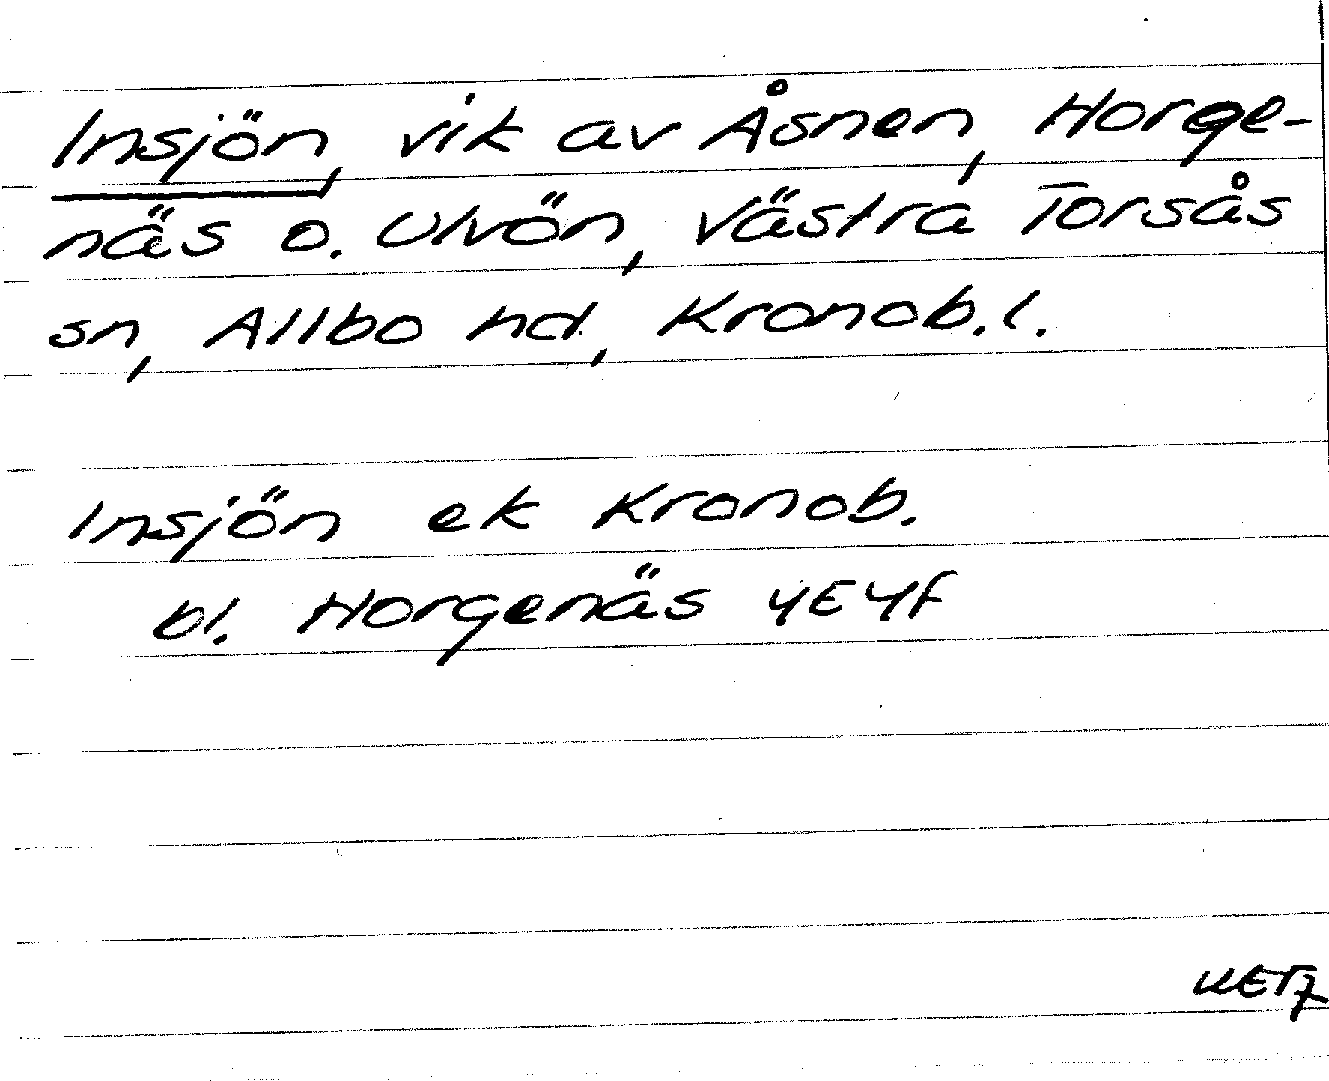 Insjön, vik av Åsnen, Horge-
näs o. Ulvön, Västra Torsås
sn, Allbo hd, Kronob. l.
Insjön ek Kronob.
bl. Horgenäs 4E4f